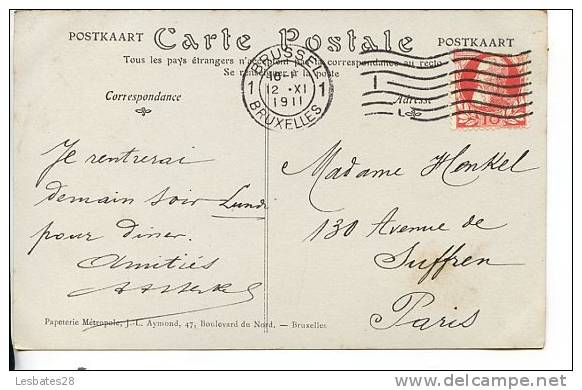 POSTKAART Carte Postale POSTKAART
Tous les pays étrangers n'acceptent pas la correspondance au recto
Se renseigner à la poste
Correspondance
Adresse
BRUSSEL
1 12 · XI 1
1911
BRUXELLES
10
Je rentrerai
demain soir Lundi
pour diner.
Amitiés
Madame Henkel
130 Avenue de
Suffren
Paris
Papeterie Métropole, J.-L. Aymond, 47, Boulevard du Nord. — Bruxelles
Lesbates28
http://www.delcampe.net